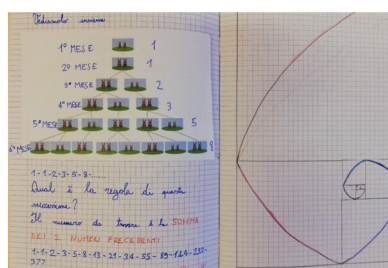 Vediamolo insieme
1° MESE 1
2° MESE 1
3° MESE 2
4° MESE 3
5° MESE 5
6° MESE 8
1-1-2-3-5-8-......
Qual è la regola di questa
successione?
Il numero da trovare è la SOMMA
DEI 2 NUMERI PRECEDENTI
1-1-2-3-5-8-13-21-34-55-89-144-233-
377